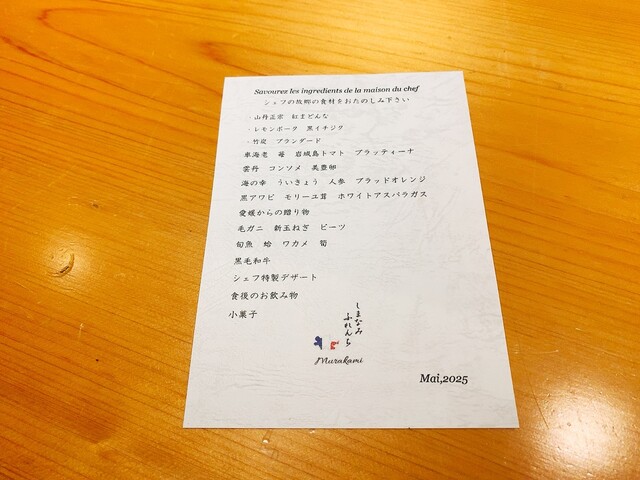 Savourez les ingredients de la maison du chef
シェフの故郷の食材をおたのしみ下さい
・山丹正宗 紅まどんな
・レモンポーク 黒イチジク
・竹炭 ブランダード
車海老 苺 岩城島トマト ブラッティーナ
雲丹 コンソメ 美豊卵
海の幸 ういきょう 人参 ブラッドオレンジ
黒アワビ モリーユ茸 ホワイトアスパラガス
愛媛からの贈り物
毛ガニ 新玉ねぎ ビーツ
旬魚 蛤 ワカメ 筍
黒毛和牛
シェフ特製デザート
食後のお飲み物
小菓子
しまなみ
ふれんち
Murakami
Mai,2025